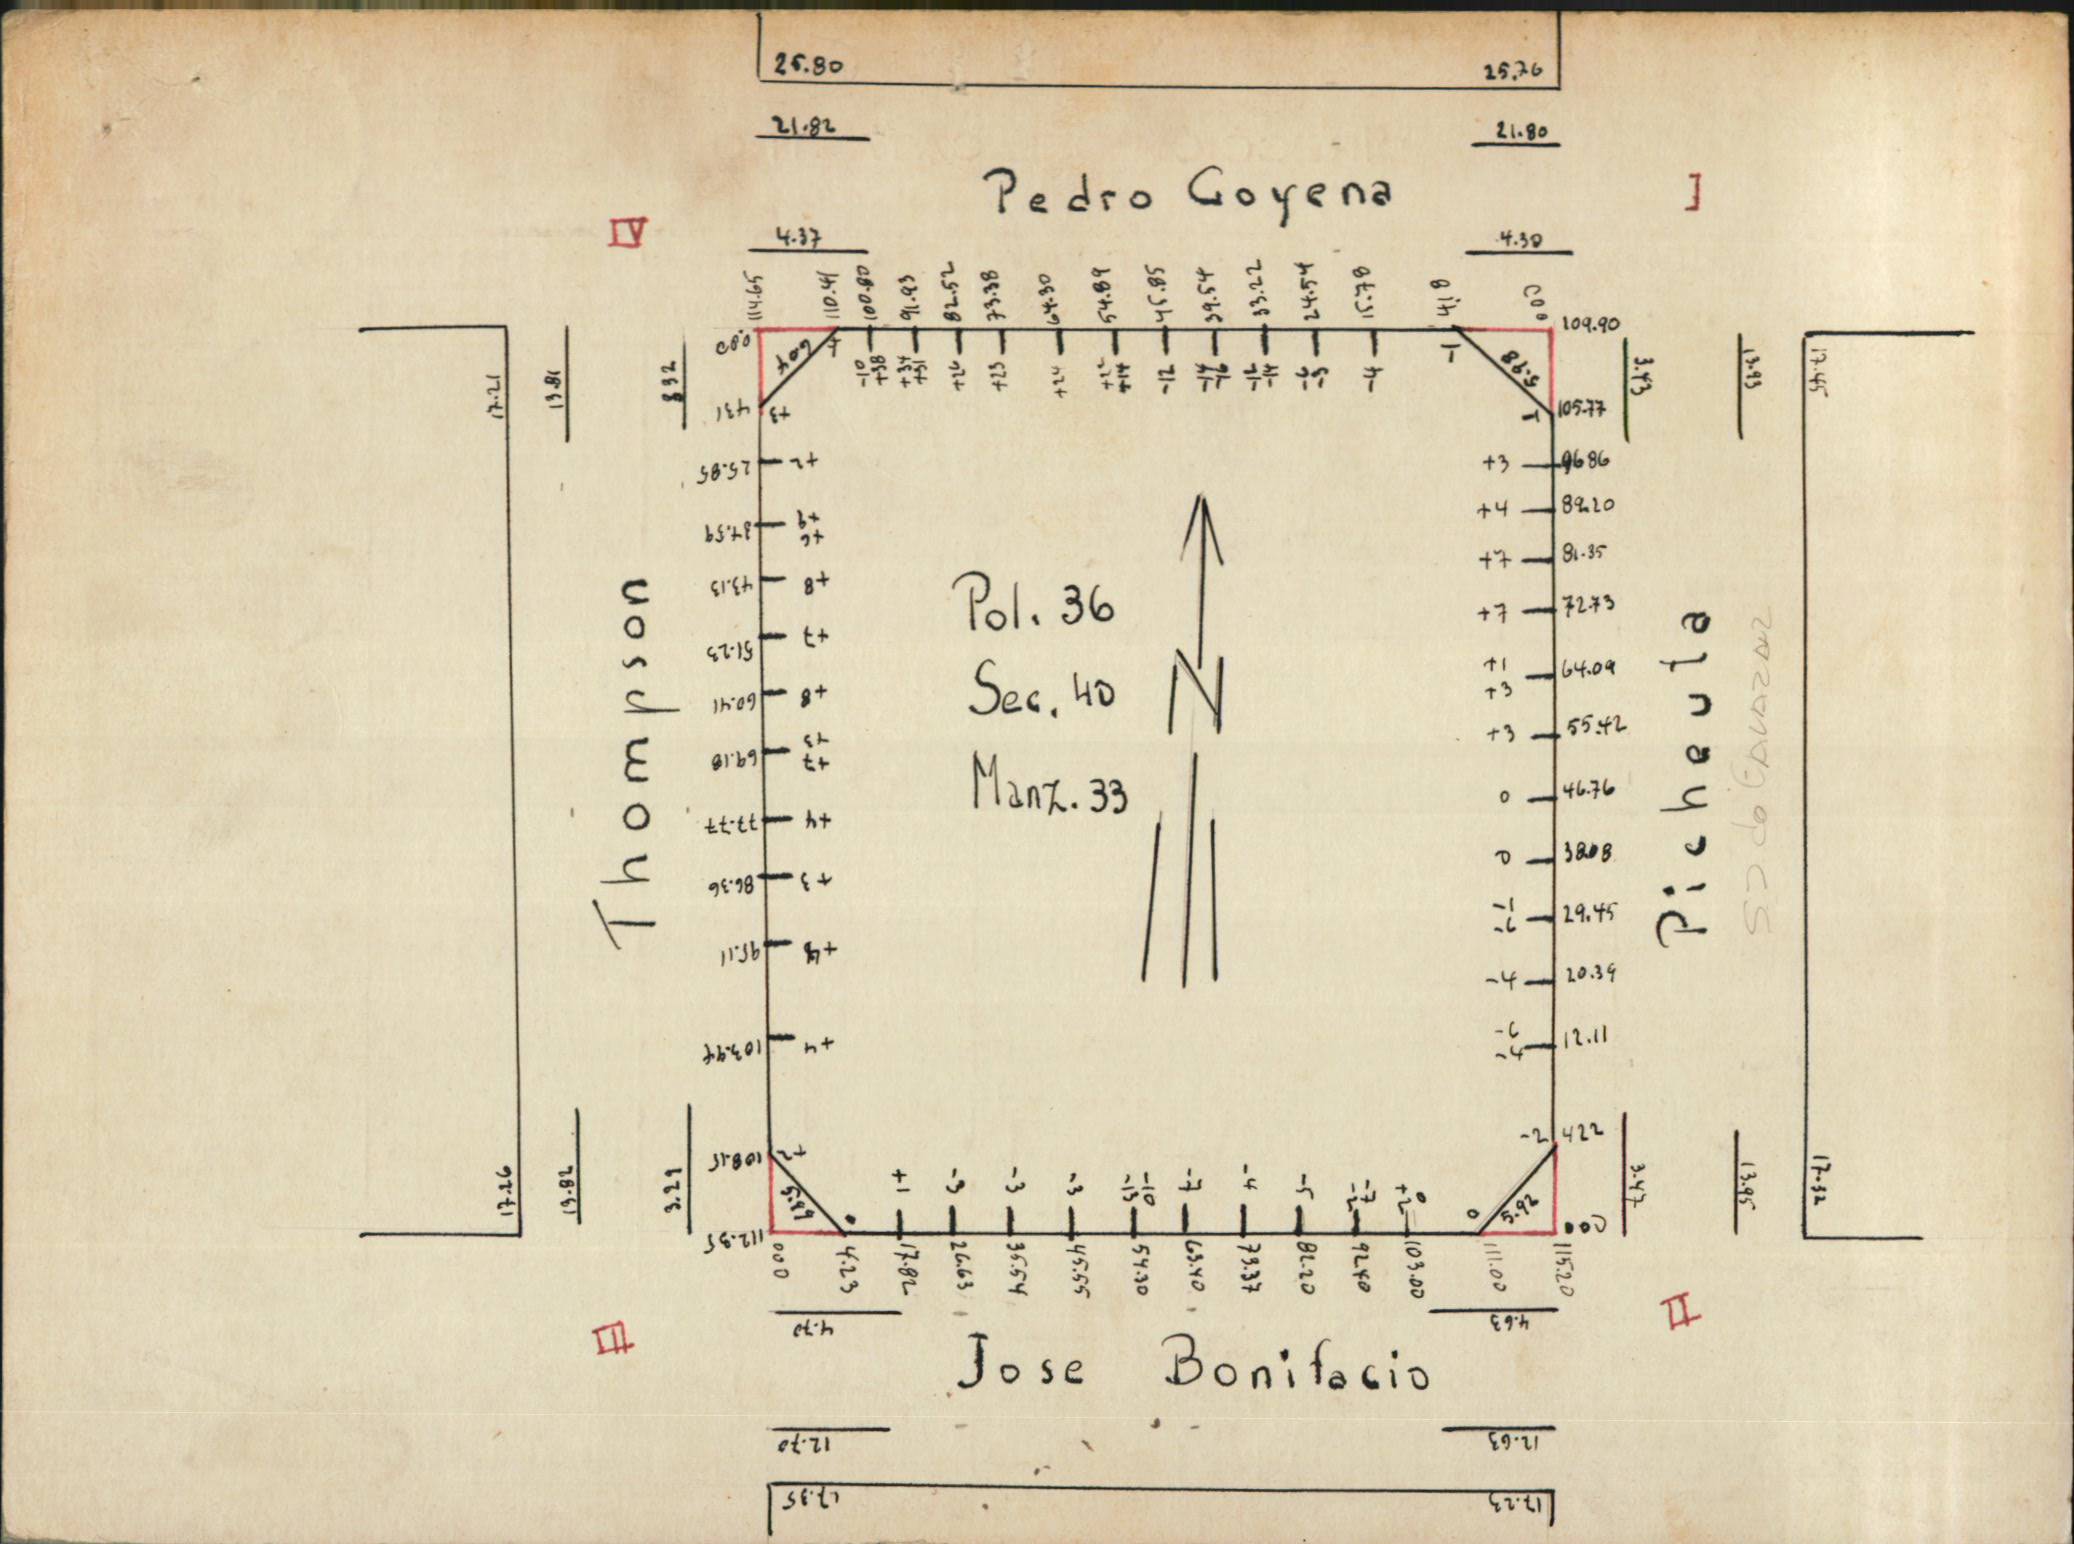 25.80 25.76
21.82 21.80
Pedro Goyena
IV I
4.37 4.30
114.65 110.41 100.80 91.93 82.52 73.38 64.30 54.89 45.85 39.54 33.22 24.54 15.78 4.18 000
-10 +38 +34 +31 +26 +23 +24 +22 +14 -12 -14 -16 -12 -14 -6 -5 -4 -1
17.21 13.81 3.32
0.00
431 +3
25.85 +2
34.59 +9 +6
43.13 +8
51.23 +7
60.41 +8
69.18 +3 +7
77.77 +4
86.36 +3
95.11 +4
103.94 +4
108.15 +2
112.35
17.26 13.82 3.29
6.04
5.98
5.89
5.92
Thompson
Pol. 36
Sec. 40
Manz. 33
N
109.90
105.77 -1
+3 96.86
+4 89.20
+7 81.35
+7 72.73
+1 +3 64.09
+3 55.42
0 46.76
0 38.08
-1 -6 29.45
-4 20.39
-6 -4 12.11
-2 422
000
3.43 13.93 17.45
Picheuta
3.47 13.95 17.32
0 +1 -3 -3 -3 -13 -10 -7 -4 -5 -7 -2 +2 0 0
000 4.23 17.82 26.63 35.54 45.55 54.30 63.40 73.37 82.20 92.40 103.00 111.00 115.20
4.70 4.63
III II
Jose Bonifacio
12.70 12.63
17.35 17.23